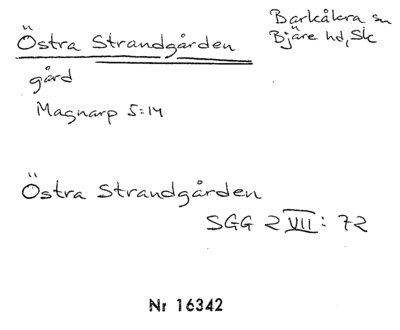 Östra Strandgården
Barkåkra sn
Bjäre hd, Sk
gård
Magnarp 5:14
Östra Strandgården
SGG 2 VII: 72
Nr 16342